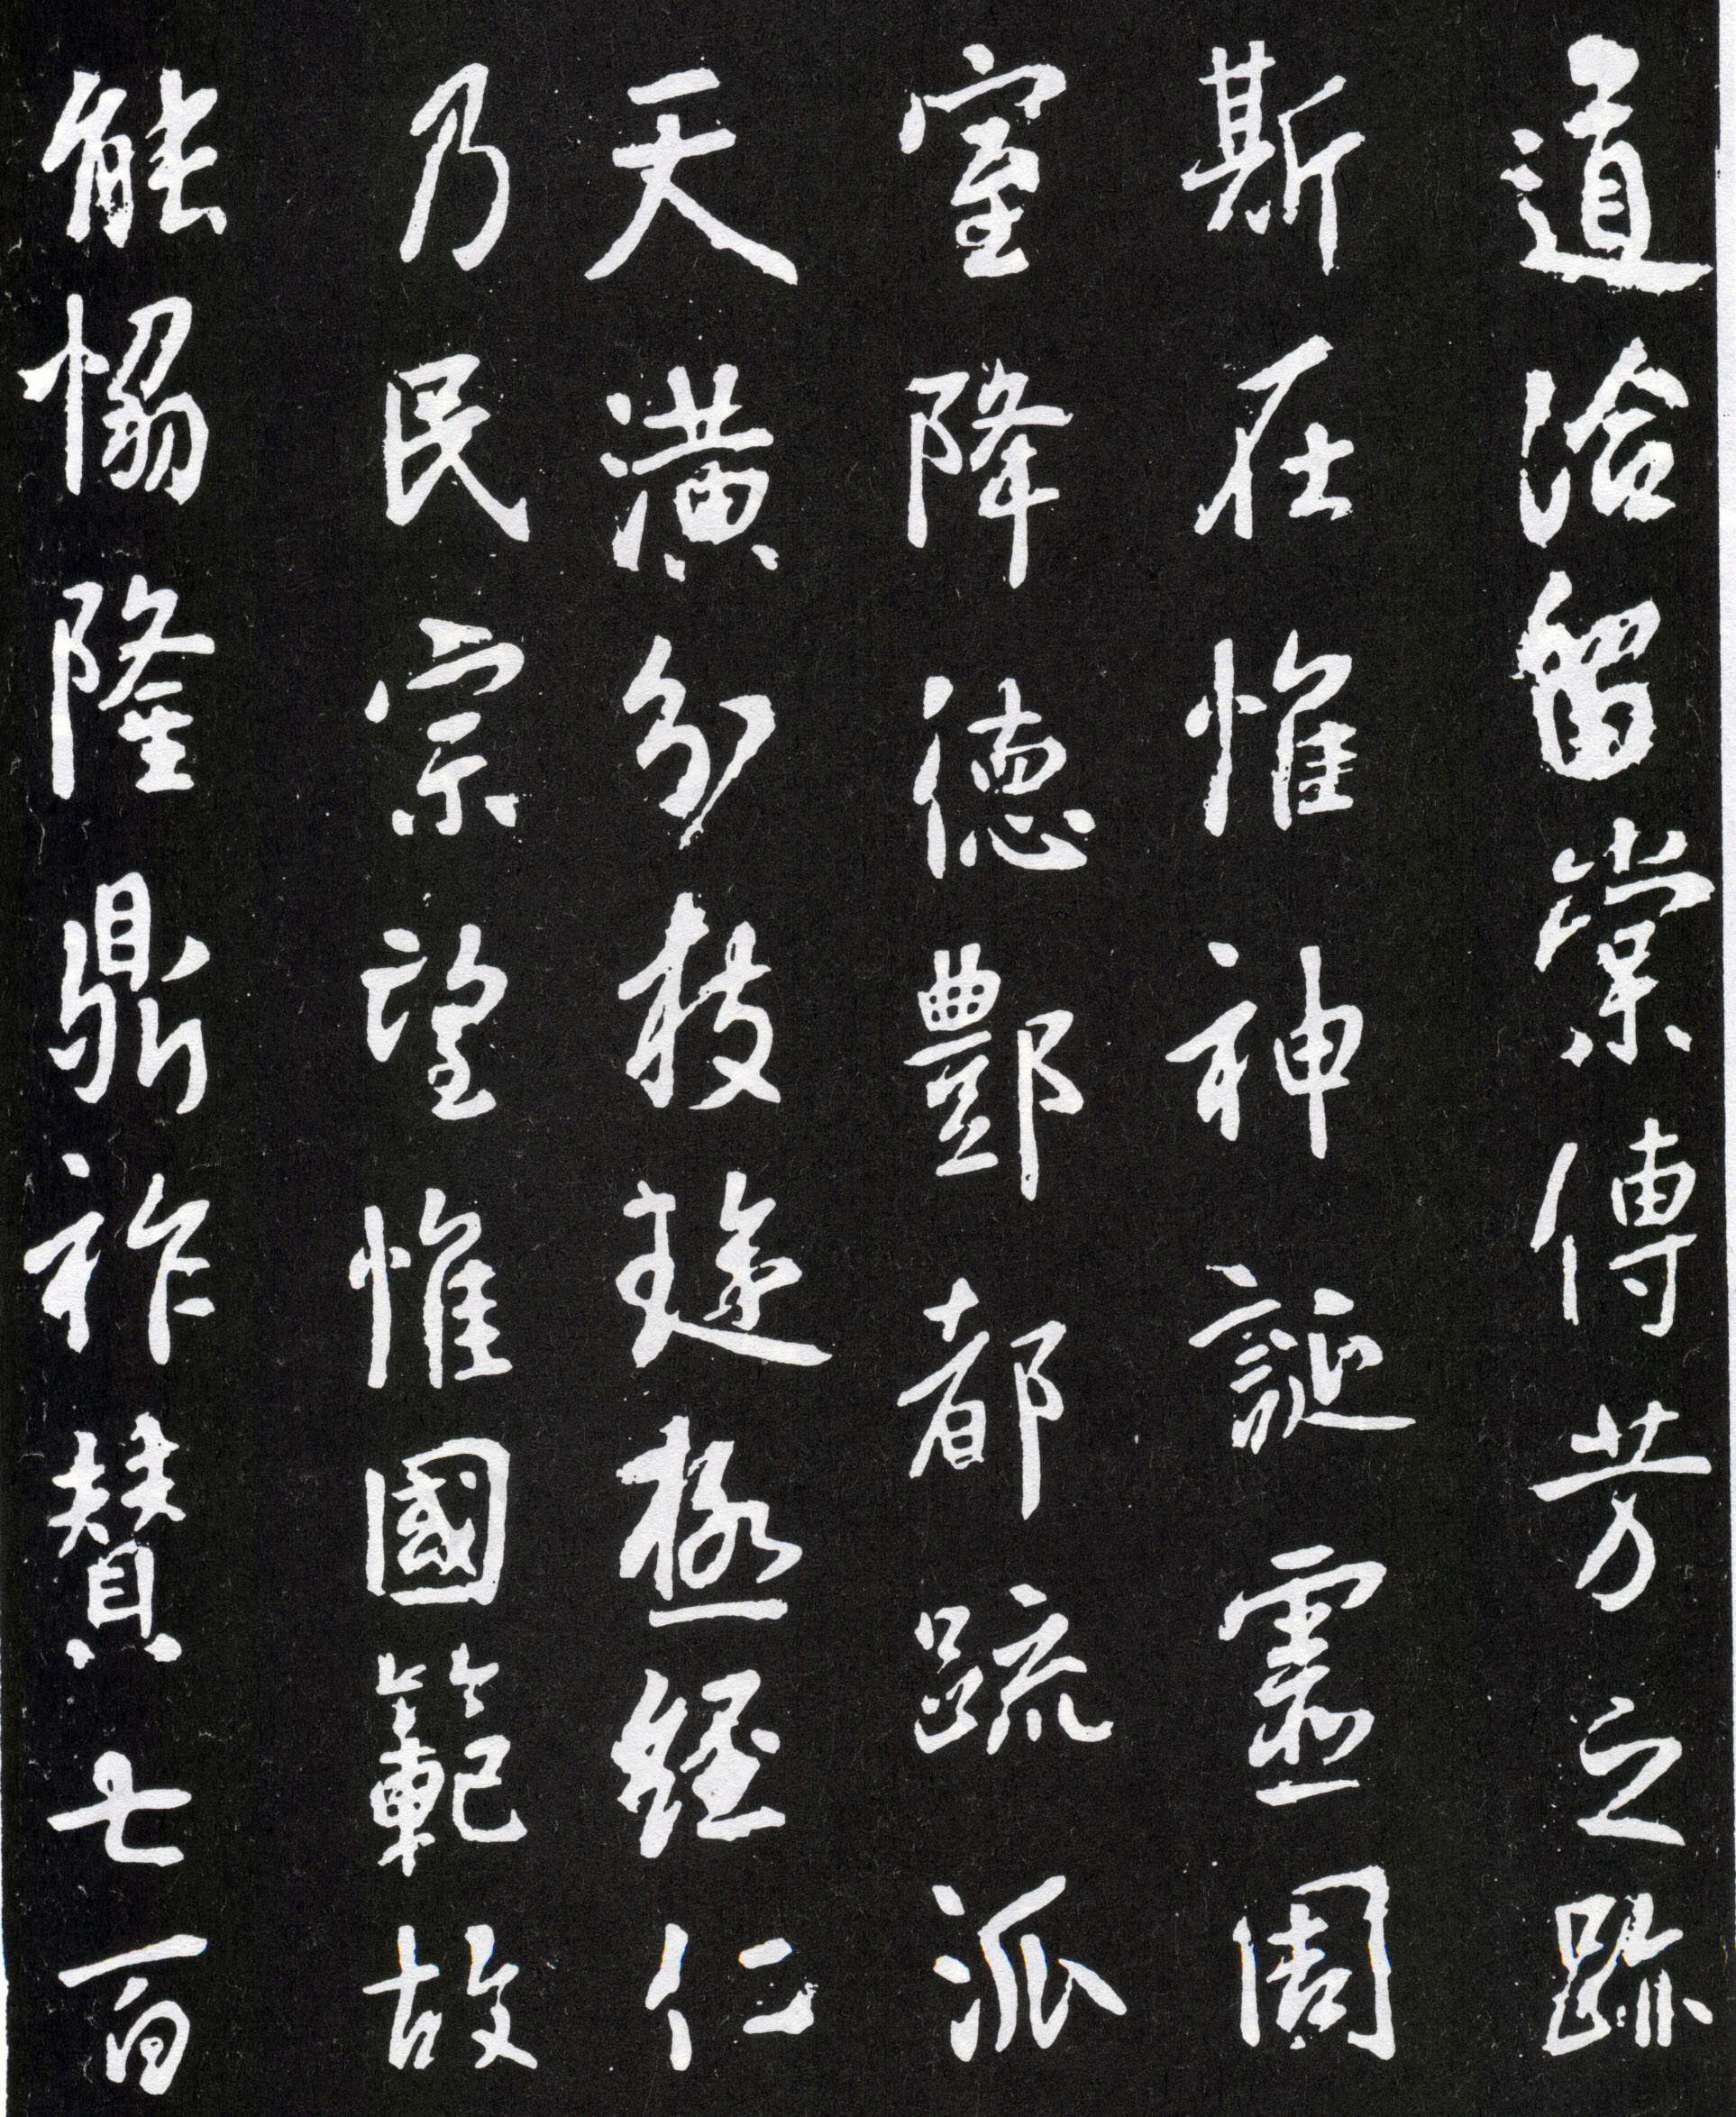 道洽留棠傳芳之跡
斯在惟神誕靈周
室降德酆都疏派
天潢分枝璇極經仁
乃民宗望惟國範故
能恊隆鼎祚賛七百